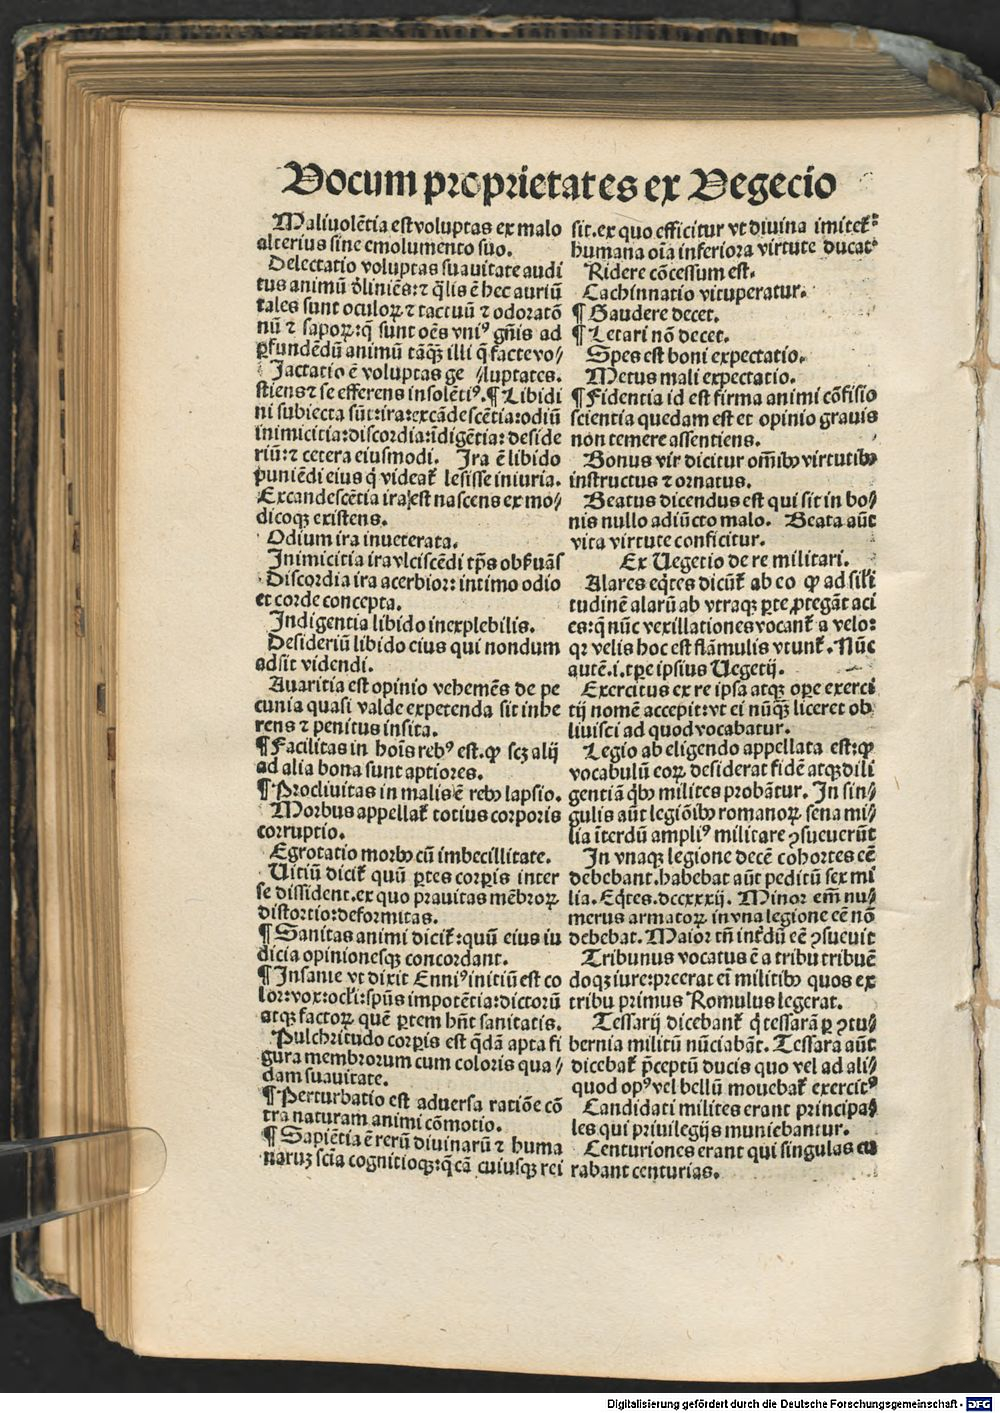 Vocum proprietates ex Vegecio
Maliuolētia est voluptas ex malo
alterius sine emolumento suo.
Delectatio voluptas suauitate audi
tus animū deliniēs: ⁊ q̄lis ē hec auriū
tales sunt oculoꝝ ⁊ tactuū ⁊ odoratō
nū ⁊ sapoꝝ: q̄ sunt oēs vniꝰ gñis ad
ꝑfundēdū animū tāꝙ̄ illi q̄ facte vo/
Jactatio ē voluptas ge /luptates.
stiens ⁊ se efferens insolētiꝰ. ¶ Libidi
ni subiecta sūt: ira: excādescētia: odiū
inimicitia: discordia: īdigētia: deside
riū: ⁊ cetera eiusmodi. Ira ē libido
puniēdi eius q̇ videat̄ lesisse iniuria.
Excandescētia ira est nascens ex mo/
dicoqꝫ existens.
Odium ira inueterata.
Inimicitia ira vlciscēdi tp̄s obẜuās
Discordia ira acerbior: intimo odio
et corde concepta.
Indigentia libido inexplebilis.
Desideriū libido eius qui nondum
adsit videndi.
Auaritia est opinio vehemēs de pe
cunia quasi valde expetenda sit inhe
rens ⁊ penitus insita.
¶ Facilitas in hoīs rebꝰ est. ꝙ scꝫ alij
ad alia bona sunt aptiores.
¶ Procliuitas in malis ē rebꝫ lapsio.
Morbus appellat̄ totius corporis
corruptio.
Egrotatio morbꝫ cū imbecillitate.
Uitiū dicit̄ quū ꝑtes corꝑis inter
se dissident. ex quo prauitas mēbroꝝ
distortio: deformitas.
¶ Sanitas animi dicit̄: quū eius iu
dicia opinionesqꝫ concordant.
¶ Insanie vt dixit Enniꝰ initiū est co
lor: vox: ocĺi: spūs impotētia: dictorū
atqꝫ factoꝝ quē ꝑtem hn̄t sanitatis.
Pulchritudo corꝑis est q̄dā apta fi
gura membrorum cum coloris qua/
dam suauitate.
¶ Perturbatio est aduersa ratiōe cō
tra naturam animi cōmotio.
¶ Sapiētia ē rerū diuinarū ⁊ huma
naruꝫ scīa cognitioqꝫ: q̄ cā cuiusqꝫ rei
sit. ex quo efficitur vt diuina imitet̄:
humana oīa inferiora virtute ducat̄
Ridere cōcessum est.
Cachinnatio vituperatur.
¶ Gaudere decet.
¶ Letari nō decet.
Spes est boni expectatio.
Metus mali expectatio.
¶ Fidentia id est firma animi cōfisio
scientia quedam est et opinio grauis
non temere assentiens.
Bonus vir dicitur om̄ibꝫ virtutibꝫ
instructus ⁊ ornatus.
Beatus dicendus est qui sit in bo/
nis nullo adiūcto malo. Beata aūt
vita virtute conficitur.
Ex Uegetio de re militari.
Alares eq̄tes dicūt̄ ab eo ꝙ ad siĺi
tudinē alarū ab vtraqꝫ ꝑte ꝓtegāt aci
es: q̄ nūc vexillationes vocant̄ a velo:
qꝛ velis hoc est flāmulis vtunt̄. Nūc
autē .i. tꝑe ipsius Uegetij.
Exercitus ex re ipsa atqꝫ oꝑe exerci
tij nomē accepit: vt ei nūꝙ̄ liceret ob
liuisci ad quod vocabatur.
Legio ab eligendo appellata est: ꝙ
vocabulū eoꝝ desiderat fidē atqꝫ dili
gentiā q̇bꝫ milites probātur. In sin/
gulis aūt legiōibꝫ romanoꝝ sena mi/
lia īterdū ampliꝰ militare ꝯsueuerūt
In vnaqꝫ legione decē cohortes eē
debebant. habebat aūt peditū sex mi
lia. Eq̄tes .dccxxxij. Minor em̄ nu/
merus armatoꝝ in vna legione eē nō
debebat. Maior tn̄ int̄dū eē ꝯsueuit
Tribunus vocatus ē a tribu tribuē
doqꝫ iure: preerat em̄ militibꝫ quos ex
tribu primus Romulus legerat.
Tessarij dicebant̄ q̇ tessarā ꝑ ꝯtu/
bernia militū nūciabāt. Tessara aūt
dicebat̄ p̄ceptū ducis quo vel ad ali/
quod opꝰ vel bellū mouebat̄ exercitꝰ
Candidati milites erant principa/
les qui priuilegijs muniebantur.
Centuriones erant qui singulas cu
rabant centurias.
Digitalisierung gefördert durch die Deutsche Forschungsgemeinschaft - DFG